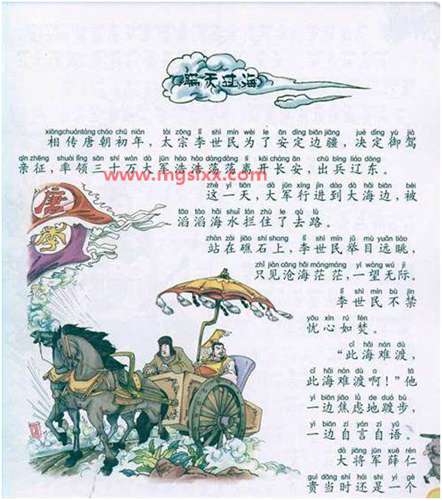 瞒天过海
xiāng chuán táng cháo chū nián tài zōng lǐ shì mín wèi le ān dìng biān jiāng jué dìng yù jià
相传唐朝初年,太宗李世民为了安定边疆,决定御驾
qīn zhēng shuài lǐng sān shí wàn dà jūn hào hào dàng dàng lí kāi cháng ān chū bīng liáo dōng
亲征,率领三十万大军浩浩荡荡离开长安,出兵辽东。
www.mgslxx.com
zhè yì tiān dà jūn xíng jìn dào dà hǎi biān bèi
这一天,大军行进到大海边,被
tāo tāo hǎi shuǐ lán zhù le qù lù
滔滔海水拦住了去路。
zhàn zài jiāo shí shang lǐ shì mín jǔ mù yuǎn tiào
站在礁石上,李世民举目远眺,
zhǐ jiàn cāng hǎi máng máng yì wàng wú jì
只见沧海茫茫,一望无际。
lǐ shì mín bù jīn
李世民不禁
yōu xīn rú fén
忧心如焚。
cǐ hǎi nán dù
“此海难渡,
cǐ hǎi nán dù a tā
此海难渡啊!”他
yì biān jiāo lǜ de duó bù
一边焦虑地踱步,
yì biān zì yán zì yǔ
一边自言自语。
dà jiāng jūn xuē rén
大将军薛仁
guì dāng shí hái shì yí gè
贵当时还是一个
唐
李